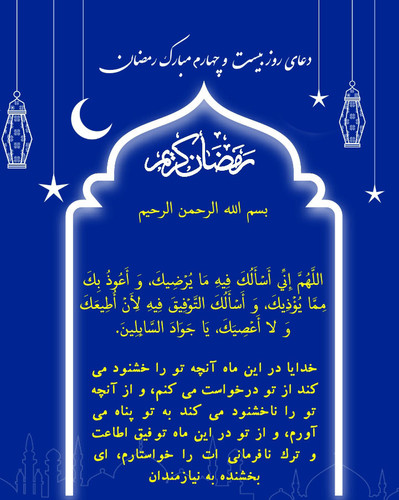 دعای روز بیست و چهارم مبارک رمضان
رمضان كريم
بسم الله الرحمن الرحیم
اللَّهُمَّ إِنِّي أَسْأَلُكَ فِيهِ مَا يُرْضِيكَ، وَ أَعُوذُ بِكَ
مِمَّا يُؤْذِيكَ، وَ أَسْأَلُكَ التَّوْفِيقَ فِيهِ لِأَنْ أُطِيعَكَ
وَ لا أَعْصِيَكَ، يَا جَوَادَ السَّائِلِينَ.
خدایا در این ماه آنچه تو را خشنود می
کند از تو درخواست می کنم، و از آنچه
تو را ناخشنود می کند به تو پناه می
آورم، و از تو در این ماه توفیق اطاعت
و ترك نافرمانی ات را خواستارم، ای
بخشنده به نیازمندان